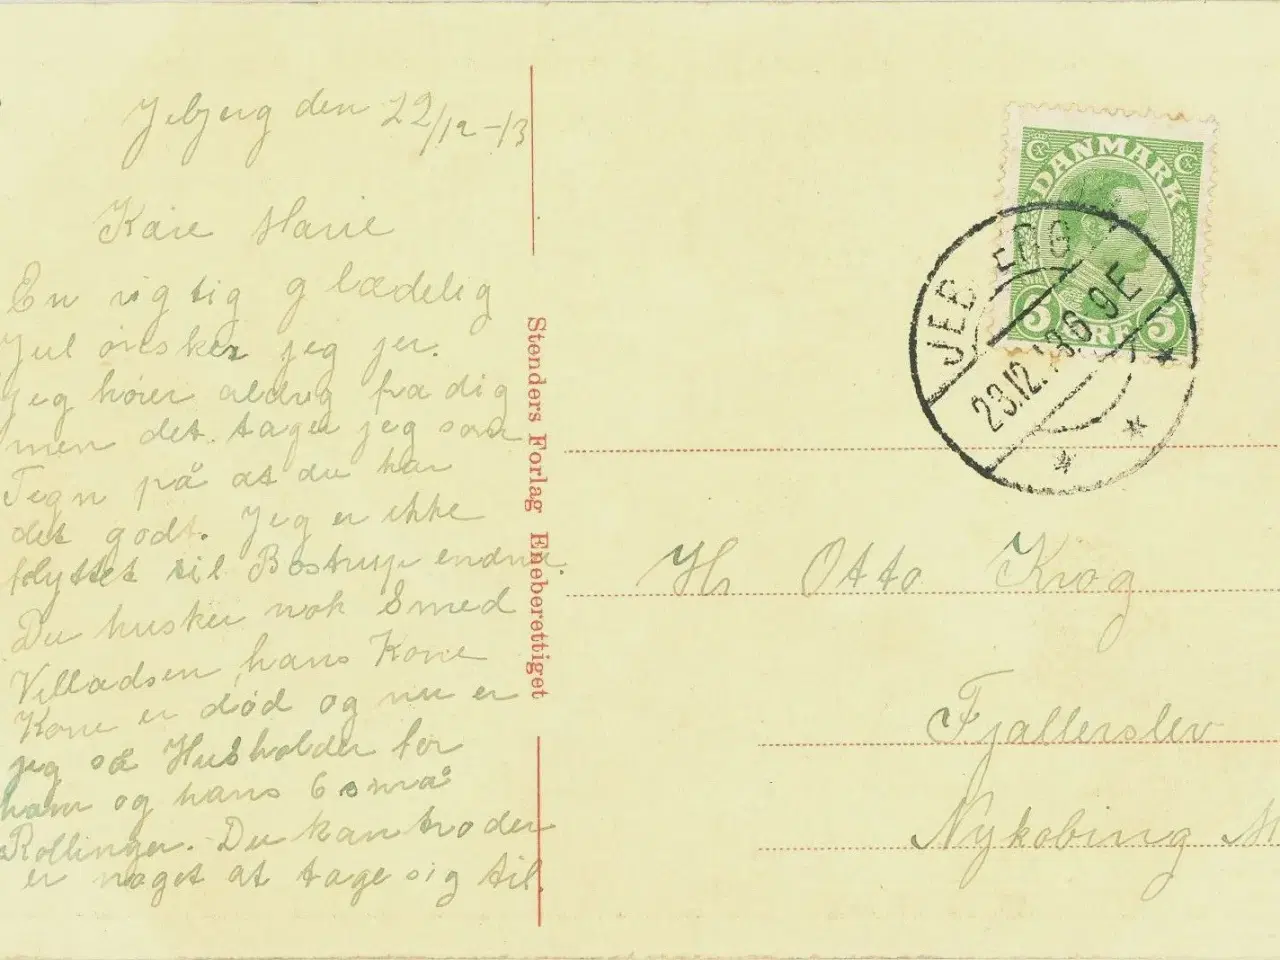 Jebjerg den 22/12-13
Kære Marie
En rigtig glædelig
Jul ønsker jeg jer.
Jeg hører aldrig fra dig
men det tager jeg som
Tegn på at du har
det godt. Jeg er ikke
flyttet til Bostrup endnu.
Du husker nok Smed
Villadsen, hans Kone
Kone er død og nu er
jeg så Husholder for
ham og hans 6 små
Rollinger. Du kan tro der
er noget at tage sig til.
Stenders Forlag Eneberettiget
DANMARK
5 ØRE 5
JEBJERG
23.12.13. 6-9E
Hr Otto Krog
Fjallerslev
Nykøbing M